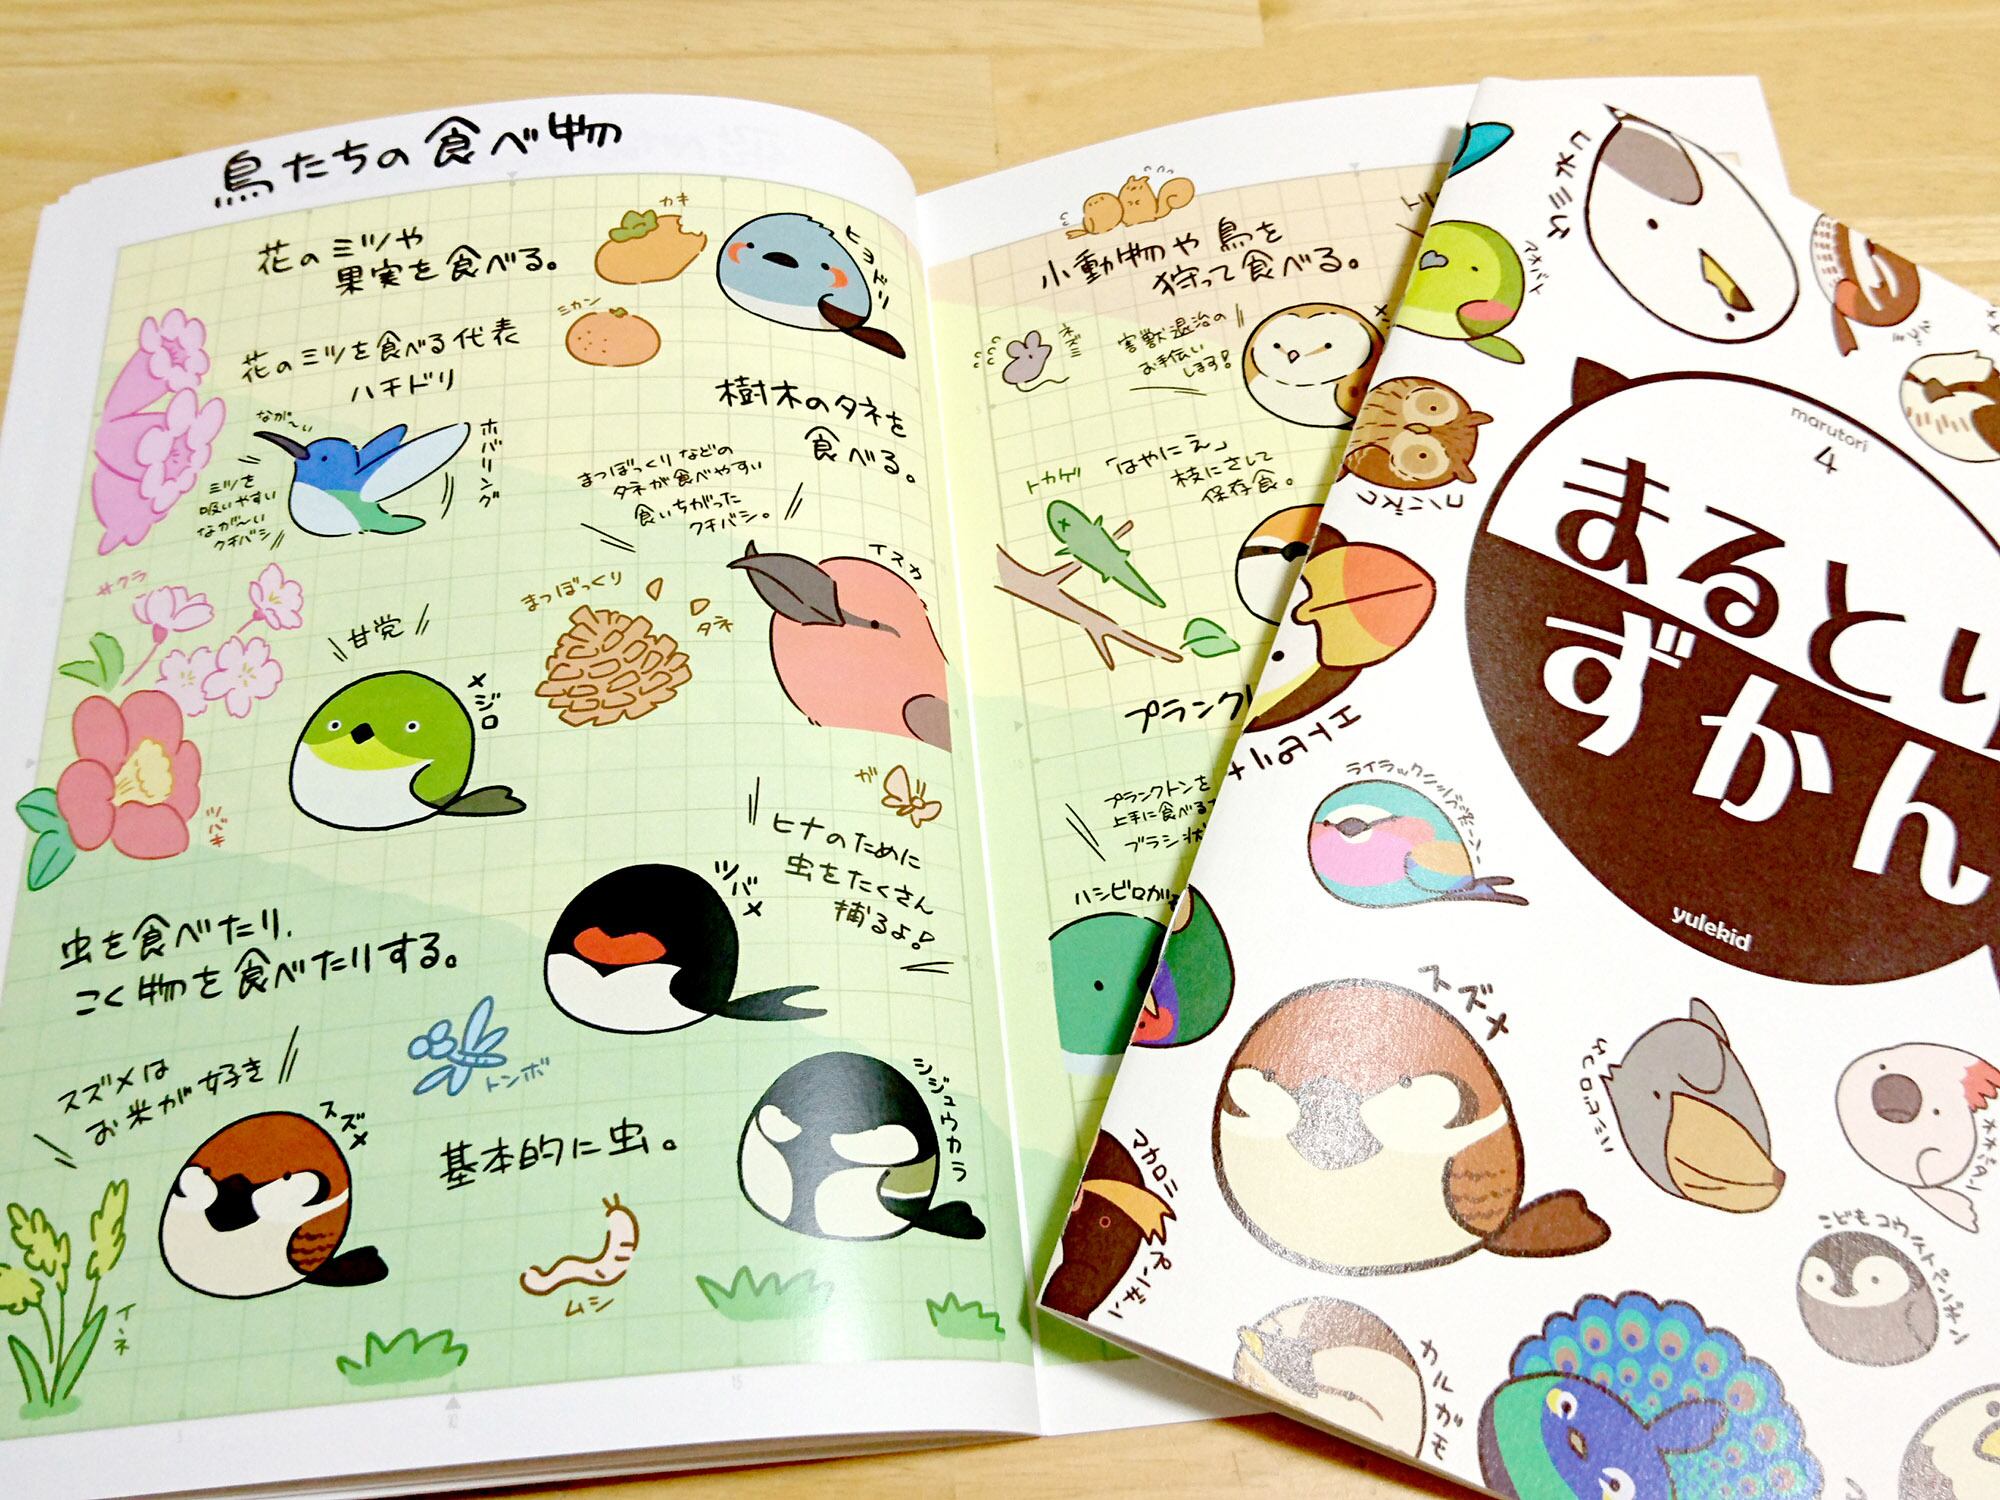 鳥たちの食べ物
花のミツや
果実を食べる。
カキ
ミカン
ヒヨドリ
花のミツを食べる代表
ハチドリ
なが〜い
ホバリング
ミツを
吸いやすい
なが〜い
クチバシ
樹木のタネを
食べる。
まつぼっくりなどの
タネが食べやすい
食いちがった
クチバシ。
イスカ
まつぼっくり
タネ
サクラ
甘党
メジロ
ツバキ
ガ
ヒナのために
虫をたくさん
捕るよ!
ツバメ
虫を食べたり、
こく物を食べたりする。
スズメは
お米が好き
スズメ
イネ
トンボ
基本的に虫。
ムシ
シジュウカラ
小動物や鳥を
狩って食べる。
ネズミ
害獣退治の
お手伝い
します!
トカゲ
「はやにえ」
枝にさして
保存食。
プランク
プランクトンを
上手に食べる
ブラシ状
ハシビロガ
ウミネコ
アオバト
コノハズク
marutori
4
まるとり
ずかん
yulekid
エトピリカ
ライラックニシブッポウソウ
スズメ
ハシビロコウ
オオジタン
マカロニ
ペンギン
こどもコウテイペンギン
カルガモ